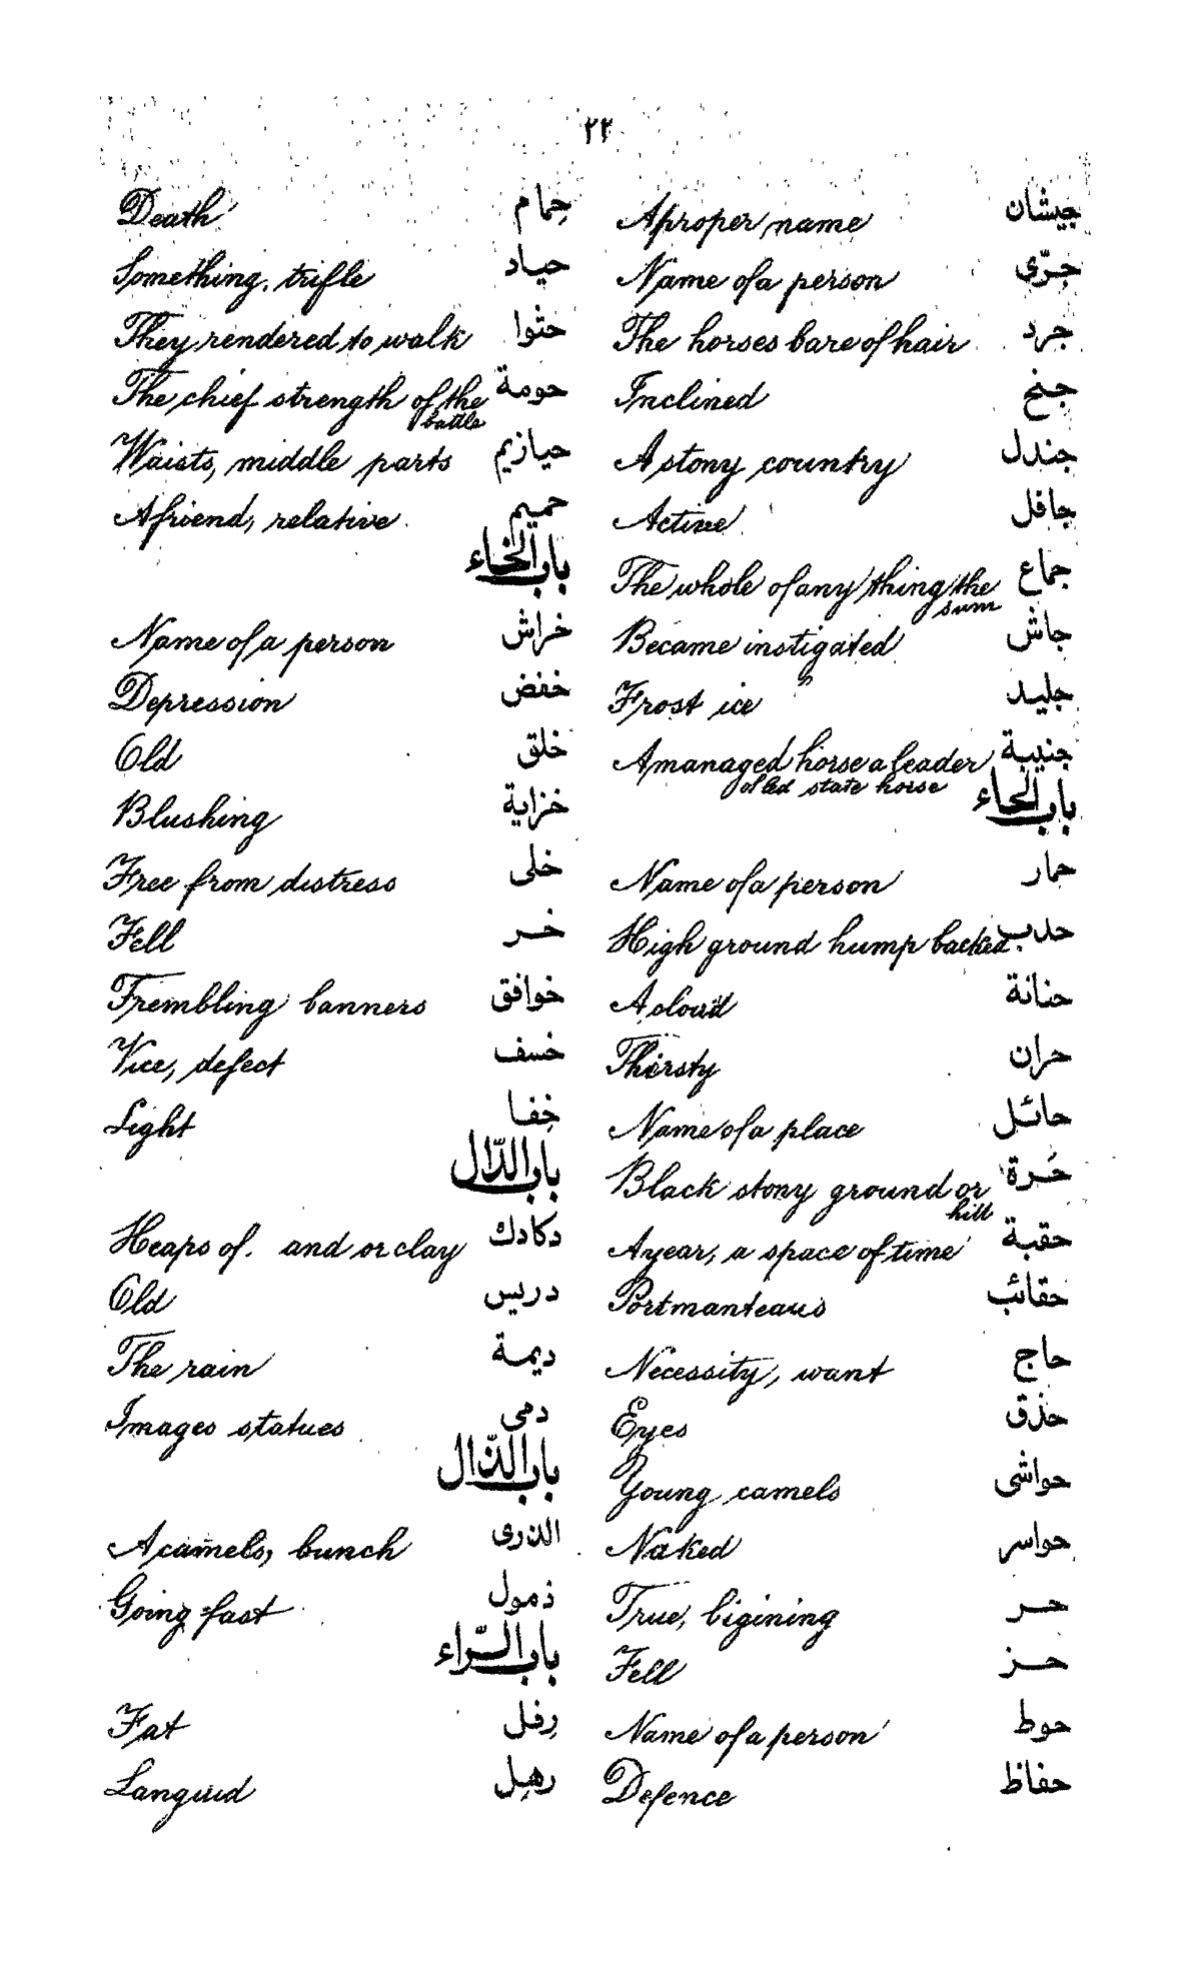 ٢٢
جيشان Aproper name
جرّى Name of a person
جرد The horses bare of hair
جنح Inclined
جندل A stony country
جافل Active
جماع The whole of any thing the
sum
جاش Became instigated
جليد Frost ice
جنيبة A managed horse a leader
of led state horse
باب الحاء
حمار Name of a person
حدب High ground hump backed.
حنانة A cloud
حران Thirsty
حائل Name of a place
حَرة Black stony ground or
hill
حقبة A year, a space of time
حقائب Portmanteaus
حاج Necessity, want
حذق Eyes
حواشى Young camels
حواسر Naked
حر True, bigining
حز Fell
حوط Name of a person
حفاظ Defence
حِمام Death
حياد Something, trifle
حثوا They rendered to walk
حومة The chief strength of the
battle
حيازيم Waists, middle parts
حميم A friend, relative
باب الخاء
خراش Name of a person
خفض Depression
خلق Old
خزاية Blushing
خلى Free from distress
خر Fell
خوافق Trembling banners
خسف Vice, defect
خِفا Light
باب الدّال
دكادك Heaps of. and or clay
دريس Old
ديمة The rain
دمى Images statues
باب الذّال
الذرى A camels, bunch
ذمول Going fast
باب الرّاء
رِفل Fat
رهِل Languid